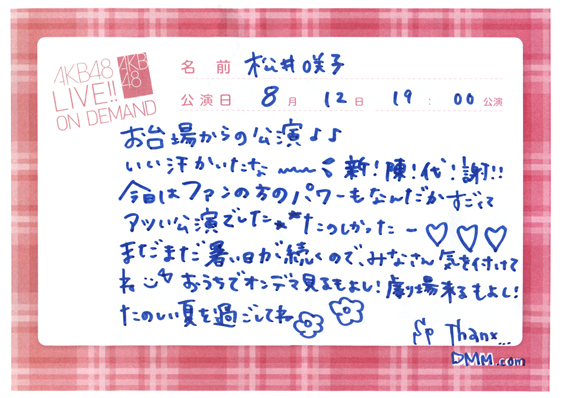 AKB48
LIVE!!
ON DEMAND
AKB
48
名前 松井咲子
公演日 8月 12日 19:00公演
お台場からの公演♪♪
いい汗かいたな〜 新!陳!代!謝!!
今日はファンの方のパワーもなんだかすごくて
アツい公演でした たのしかったー♡♡♡
まだまだ暑い日が続くので、みなさん気を付けて
ね おうちでオンデマ見るもよし!劇場来るもよし!
たのしい夏を過ごしてね
Sp Thanx...
DMM.com